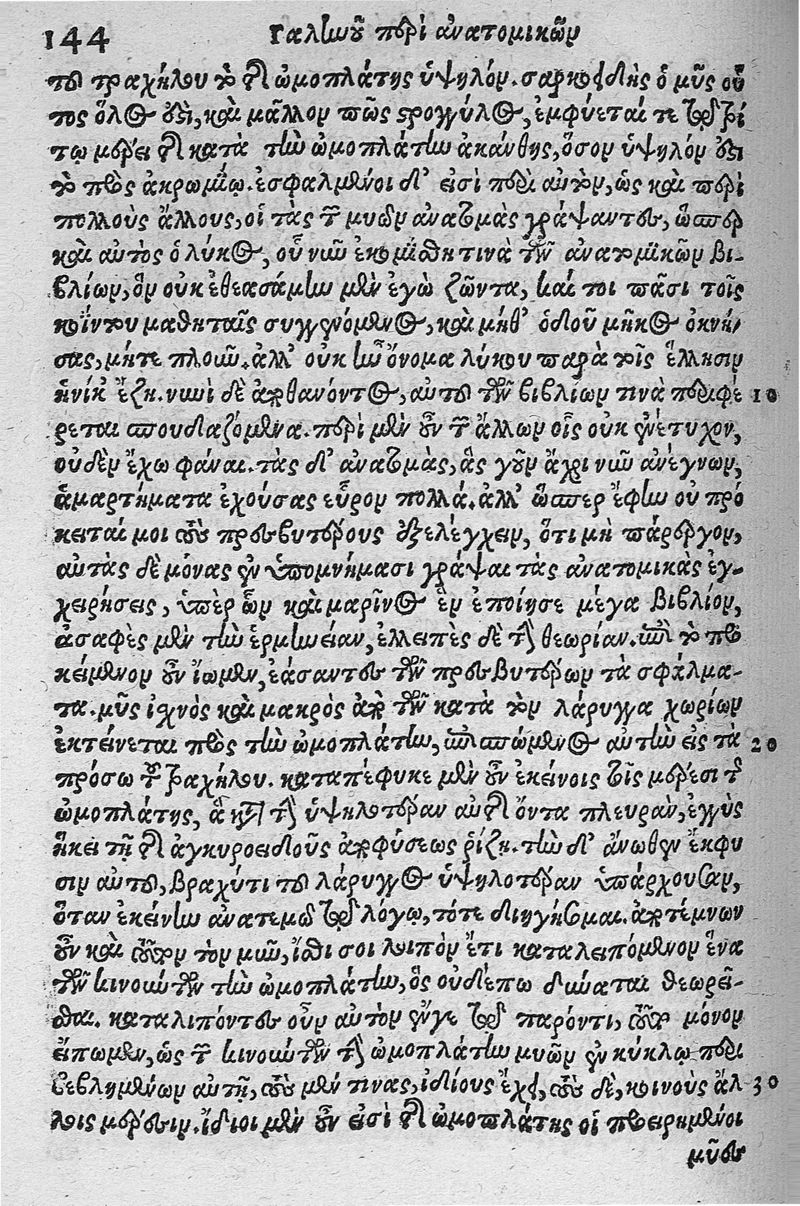 144 Γαληνοῦ περὶ ἀνατομικῶν
τοῦ τραχήλου τὸ τῆς ὠμοπλάτης ὑψηλόν. σαρκοειδὴς ὁ μῦς οὗ
τος ὅλος ἐστὶ, καὶ μᾶλλον πῶς στρογγύλος, ἐμφύεταί τε τῷ τρί
τῳ μέρει τῆς κατὰ τὴν ὠμοπλάτην ἀκάνθης, ὅσον ὑψηλὸν ἐπὶ
τὸ πρὸς ἀκρωμίῳ. ἐσφαλμένοι δ' εἰσὶ περὶ αὐτὸν, ὡς καὶ περὶ
πολλοὺς ἄλλους, οἱ τὰς τῶν μυῶν ἀνατομὰς γράψαντες, ὥσπερ
καὶ αὐτὸς ὁ λύκος, οὗ νῦν ἐκομίσθη τινὰ τῶν ἀνατομικῶν βι-
βλίων, ὃν οὐκ ἐθεασάμην μὲν ἐγὼ ζῶντα, καί τοι πᾶσι τοῖς
κοΐντου μαθηταῖς συγγενόμενος, καὶ μήθ' ὁδοῦ μῆκος ὀκνή-
σας, μήτε πλοῦν. ἀλλ' οὐκ ἦν ὄνομα λύκου παρὰ τοῖς ἕλλησιν
ἡνίκ' ἔζη. νυνὶ δὲ ἀποθανόντος, αὐτοῦ τῶν βιβλίων τινὰ περιφέ 10
ρεται σπουδαζόμενα. περὶ μὲν οὖν τῶν ἄλλων οἷς οὐκ ἐνέτυχον,
οὐδὲν ἔχω φάναι. τὰς δ' ἀνατομὰς, ἃς γοῦν ἄχρι νῦν ἀνέγνων,
ἁμαρτήματα ἐχούσας εὗρον πολλά. ἀλλ' ὥσπερ ἔφην οὐ πρό
κειταί μοι τοὺς πρεσβυτέρους ἐξελέγχειν, ὅτι μὴ πάρεργον,
αὐτὰς δὲ μόνας ἐν ὑπομνήμασι γράψαι τὰς ἀνατομικὰς ἐγ-
χειρήσεις, ὑπὲρ ὧν καὶ μαρῖνος ἓν ἐποίησε μέγα βιβλίον,
ἀσαφὲς μὲν τὴν ἑρμηνείαν, ἐλλειπὲς δὲ τὴν θεωρίαν. ἐπὶ τὸ προ
κείμενον οὖν ἴωμεν, ἐάσαντες τῶν πρεσβυτέρων τὰ σφάλμα-
τα. μῦς ἰχνὸς καὶ μακρὸς ἀπὸ τῶν κατὰ τὸν λάρυγγα χωρίων
ἐκτείνεται πρὸς τὴν ὠμοπλάτην, ἐπισπώμενος αὐτὴν εἰς τὰ 20
πρόσω τοῦ τραχήλου. καταπέφυκε μὲν οὖν ἐκείνοις τοῖς μέρεσι τῆς
ὠμοπλάτης, ἃ κατὰ τὴν ὑψηλοτέραν αὐτῆς ὄντα πλευρὰν, ἐγγὺς
ἥκει τῇ τῆς ἀγκυροειδοῦς ἀποφύσεως ῥίζῃ. τὴν δ' ἄνωθεν ἔκφυ
σιν αὐτοῦ, βραχύτι τοῦ λάρυγγος ὑψηλοτέραν ὑπάρχουσαν,
ὅταν ἐκείνην ἀνατεμῶ τῷ λόγῳ, τότε διηγήσομαι. ἀποτέμνων
οὖν καὶ τοῦτον τὸν μῦν, ἴσθι σοι λοιπὸν ἔτι καταλειπόμενον ἕνα
τῶν κινούντων τὴν ὠμοπλάτην, ὃς οὐδέπω δύναται θεωρεῖ-
σθαι. καταλιπόντες οὖν αὐτὸν ἔν γε τῷ παρόντι, τοῦτο μόνον
εἴπωμεν, ὡς τῶν κινούντων τὴν ὠμοπλάτην μυῶν ἐν κύκλῳ περι
βεβλημένων αὐτῇ, τοὺς μέν τινας, ἰδίους ἔχει, τοὺς δὲ, κοινοὺς ἄλ 30
λοις μέρεσιν. ἴδιοι μὲν οὖν εἰσὶ τῆς ὠμοπλάτης οἱ προειρημένοι
μῦες